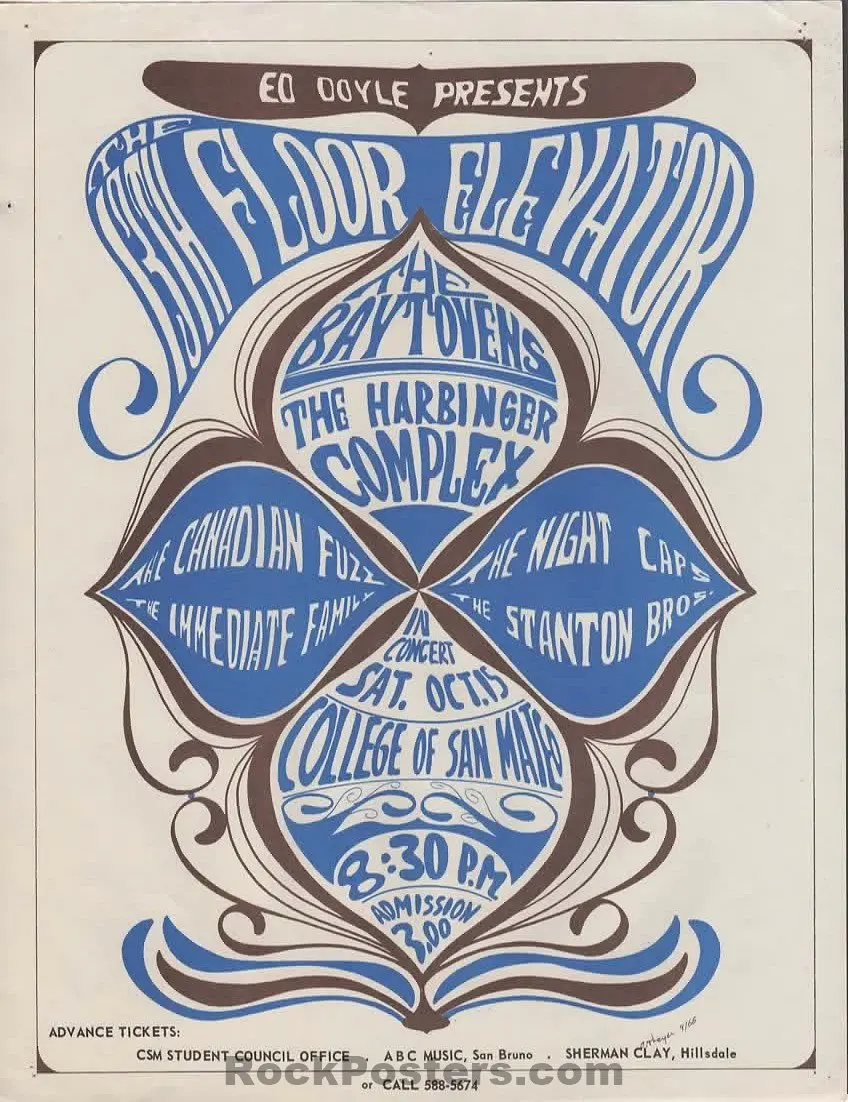 ED DOYLE PRESENTS
THE
13TH FLOOR ELEVATOR
THE
BAYTOVENS
THE HARBINGER
COMPLEX
THE CANADIAN FUZZ
THE IMMEDIATE FAMILY
THE NIGHT CAPS
THE STANTON BROS.
IN
CONCERT
SAT. OCT.15
COLLEGE OF SAN MATEO
8:30 P.M
ADMISSION
3.00
9/66
ADVANCE TICKETS:
CSM STUDENT COUNCIL OFFICE . ABC MUSIC, San Bruno . SHERMAN CLAY, Hillsdale
RockPosters.com
or CALL 588-5674